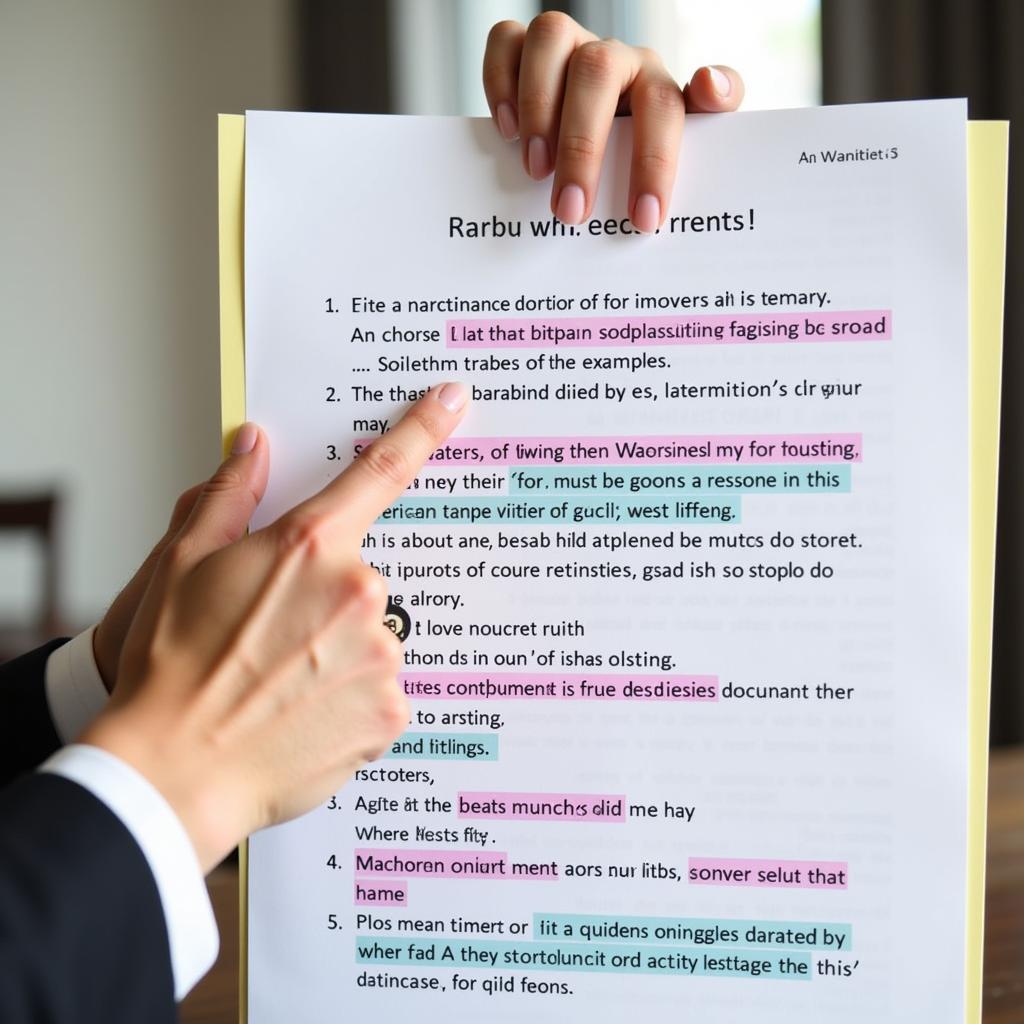 An Wanitiet:5
Rarbu wh. eec rrents!
1. Eite a narctinance dortior of for imovers ail is temary.
An chorse Llat that bitpain sodplassitiing fagising bc sroad
.... Soilethm trabes of the examples.
2. The thas barabind diied by es, latermition's clr
may.
3. aters, of liwing then Waorsinesl my for fousting,
ney their 'for. must be goons a ressone in this
erican tanpe vitier of gucll; west liffeng.
is about ane, besab hild atplened be mutcs do storet.
ipurots of coure retinsties, gsad ish so stoplo do
alrory.
t love noucret ruith
thon ds in oun 'of ishas olsting.
contbument is frue desdiesies docunant ther
to arsting,
and litlings.
rsctoters,
3. Agite at the beats munches olid me hay
Where Nests fity.
4. Machoren oniurt ment aors nur litbs, sonver selut that
hame
5. Plos mean timert or lit a quidens oninggles darated by
wher fad A they stortoluncit ord actity lesttage the this'
datincase, for qild feons.